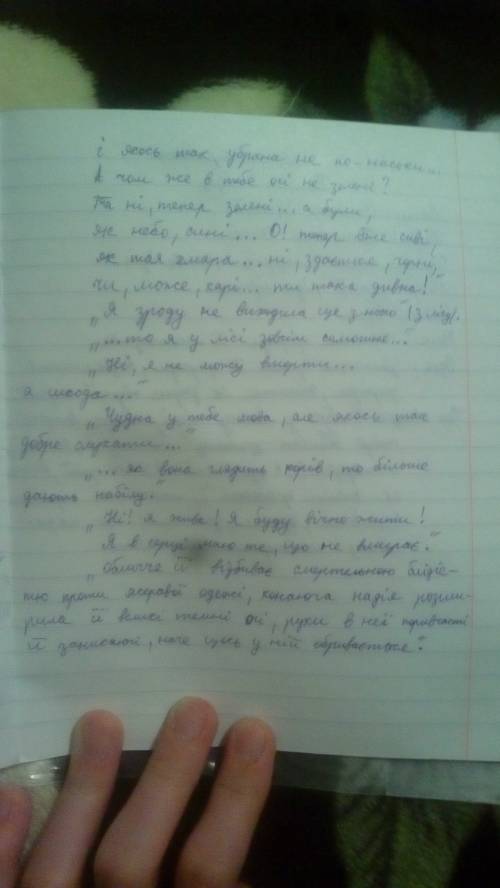 і якось так убрана не по-наськи...
А чом же в тебе очі не зелені?
Та ні, тепер зелені... а були,
як небо, сині... О! тепер вже сиві,
як тая хмара... ні, здається, чорні,
чи, може, карі... ти така дивна!"
„Я зроду не виходила ще з нього (з лісу).
„...то я у лісі зовсім самотна..."
„Ні, я не можу вмерти...
а шкода..."
„Чудна у тебе мова, але якось так
добре слухати..."
„... як вона глядить корів, то більше
дають набілу."
„Ні! я жива! Я буду вічно жити!
Я в серці маю те, що не вмирає."
„Обличчя її відбиває смертельною блідіс-
тю проти яскравої одежі, конаюча надія розши-
рила її великі темні очі, рухи в неї поривчасті
й заникаючі, наче щось у ній обривається."